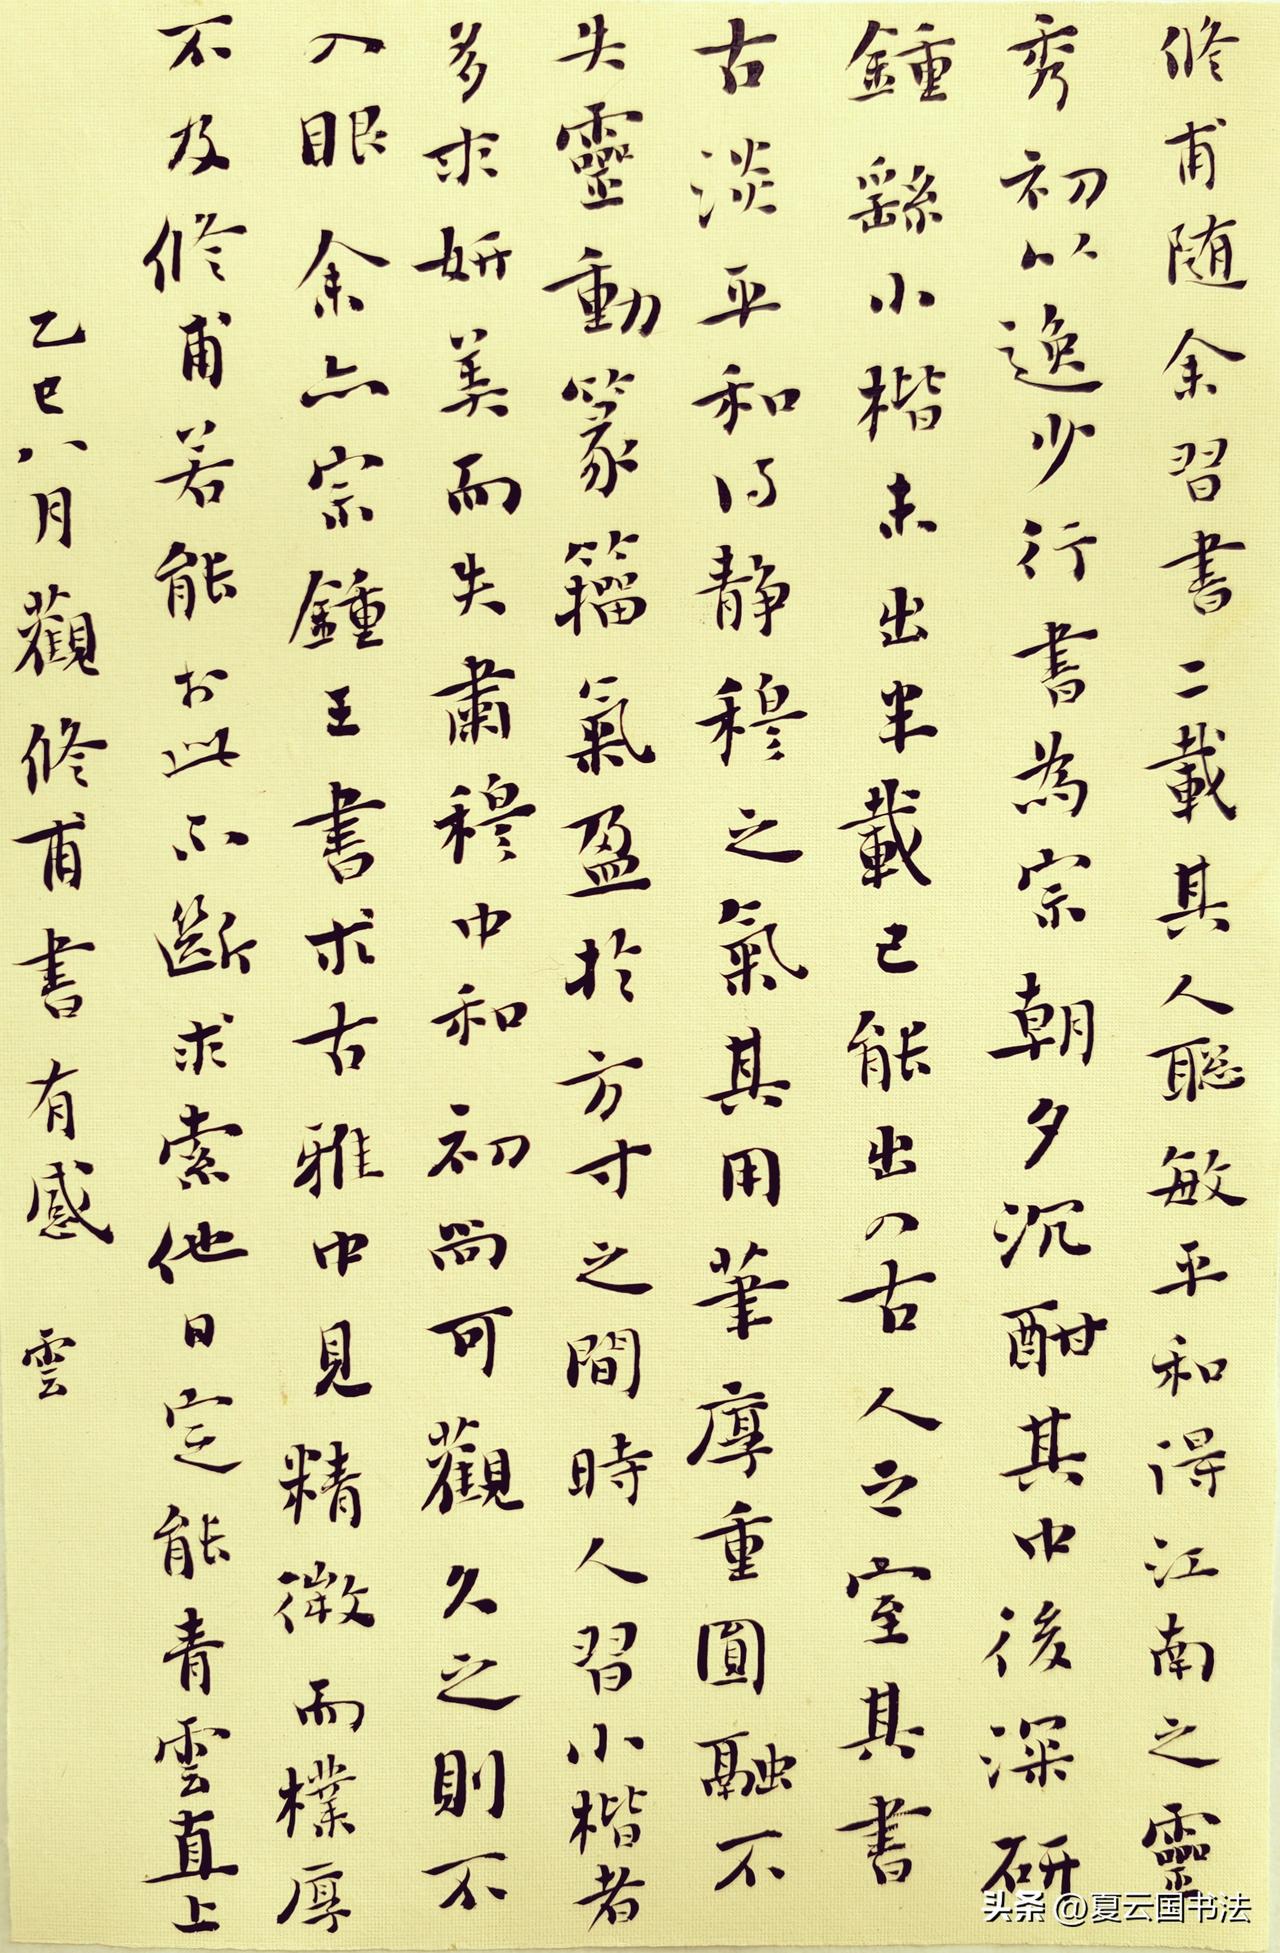 修甫随余習書二載其人聪敏平和得江南之靈
秀初以逸少行書為宗朝夕沉酣其中後深研
鍾繇小楷未出半載已能出入古人之室其書
古淡平和得静穆之氣其用筆厚重圓融不
失靈動篆籀氣盈於方寸之間時人習小楷者
多求妍美而失肅穆中和初尚可觀久之則不
入眼余亦宗鍾王書求古雅中見精微而樸厚
不及修甫若能於此不斷求索他日定能青雲直上
乙巳八月觀修甫書有感 雲
头条 @夏云国书法